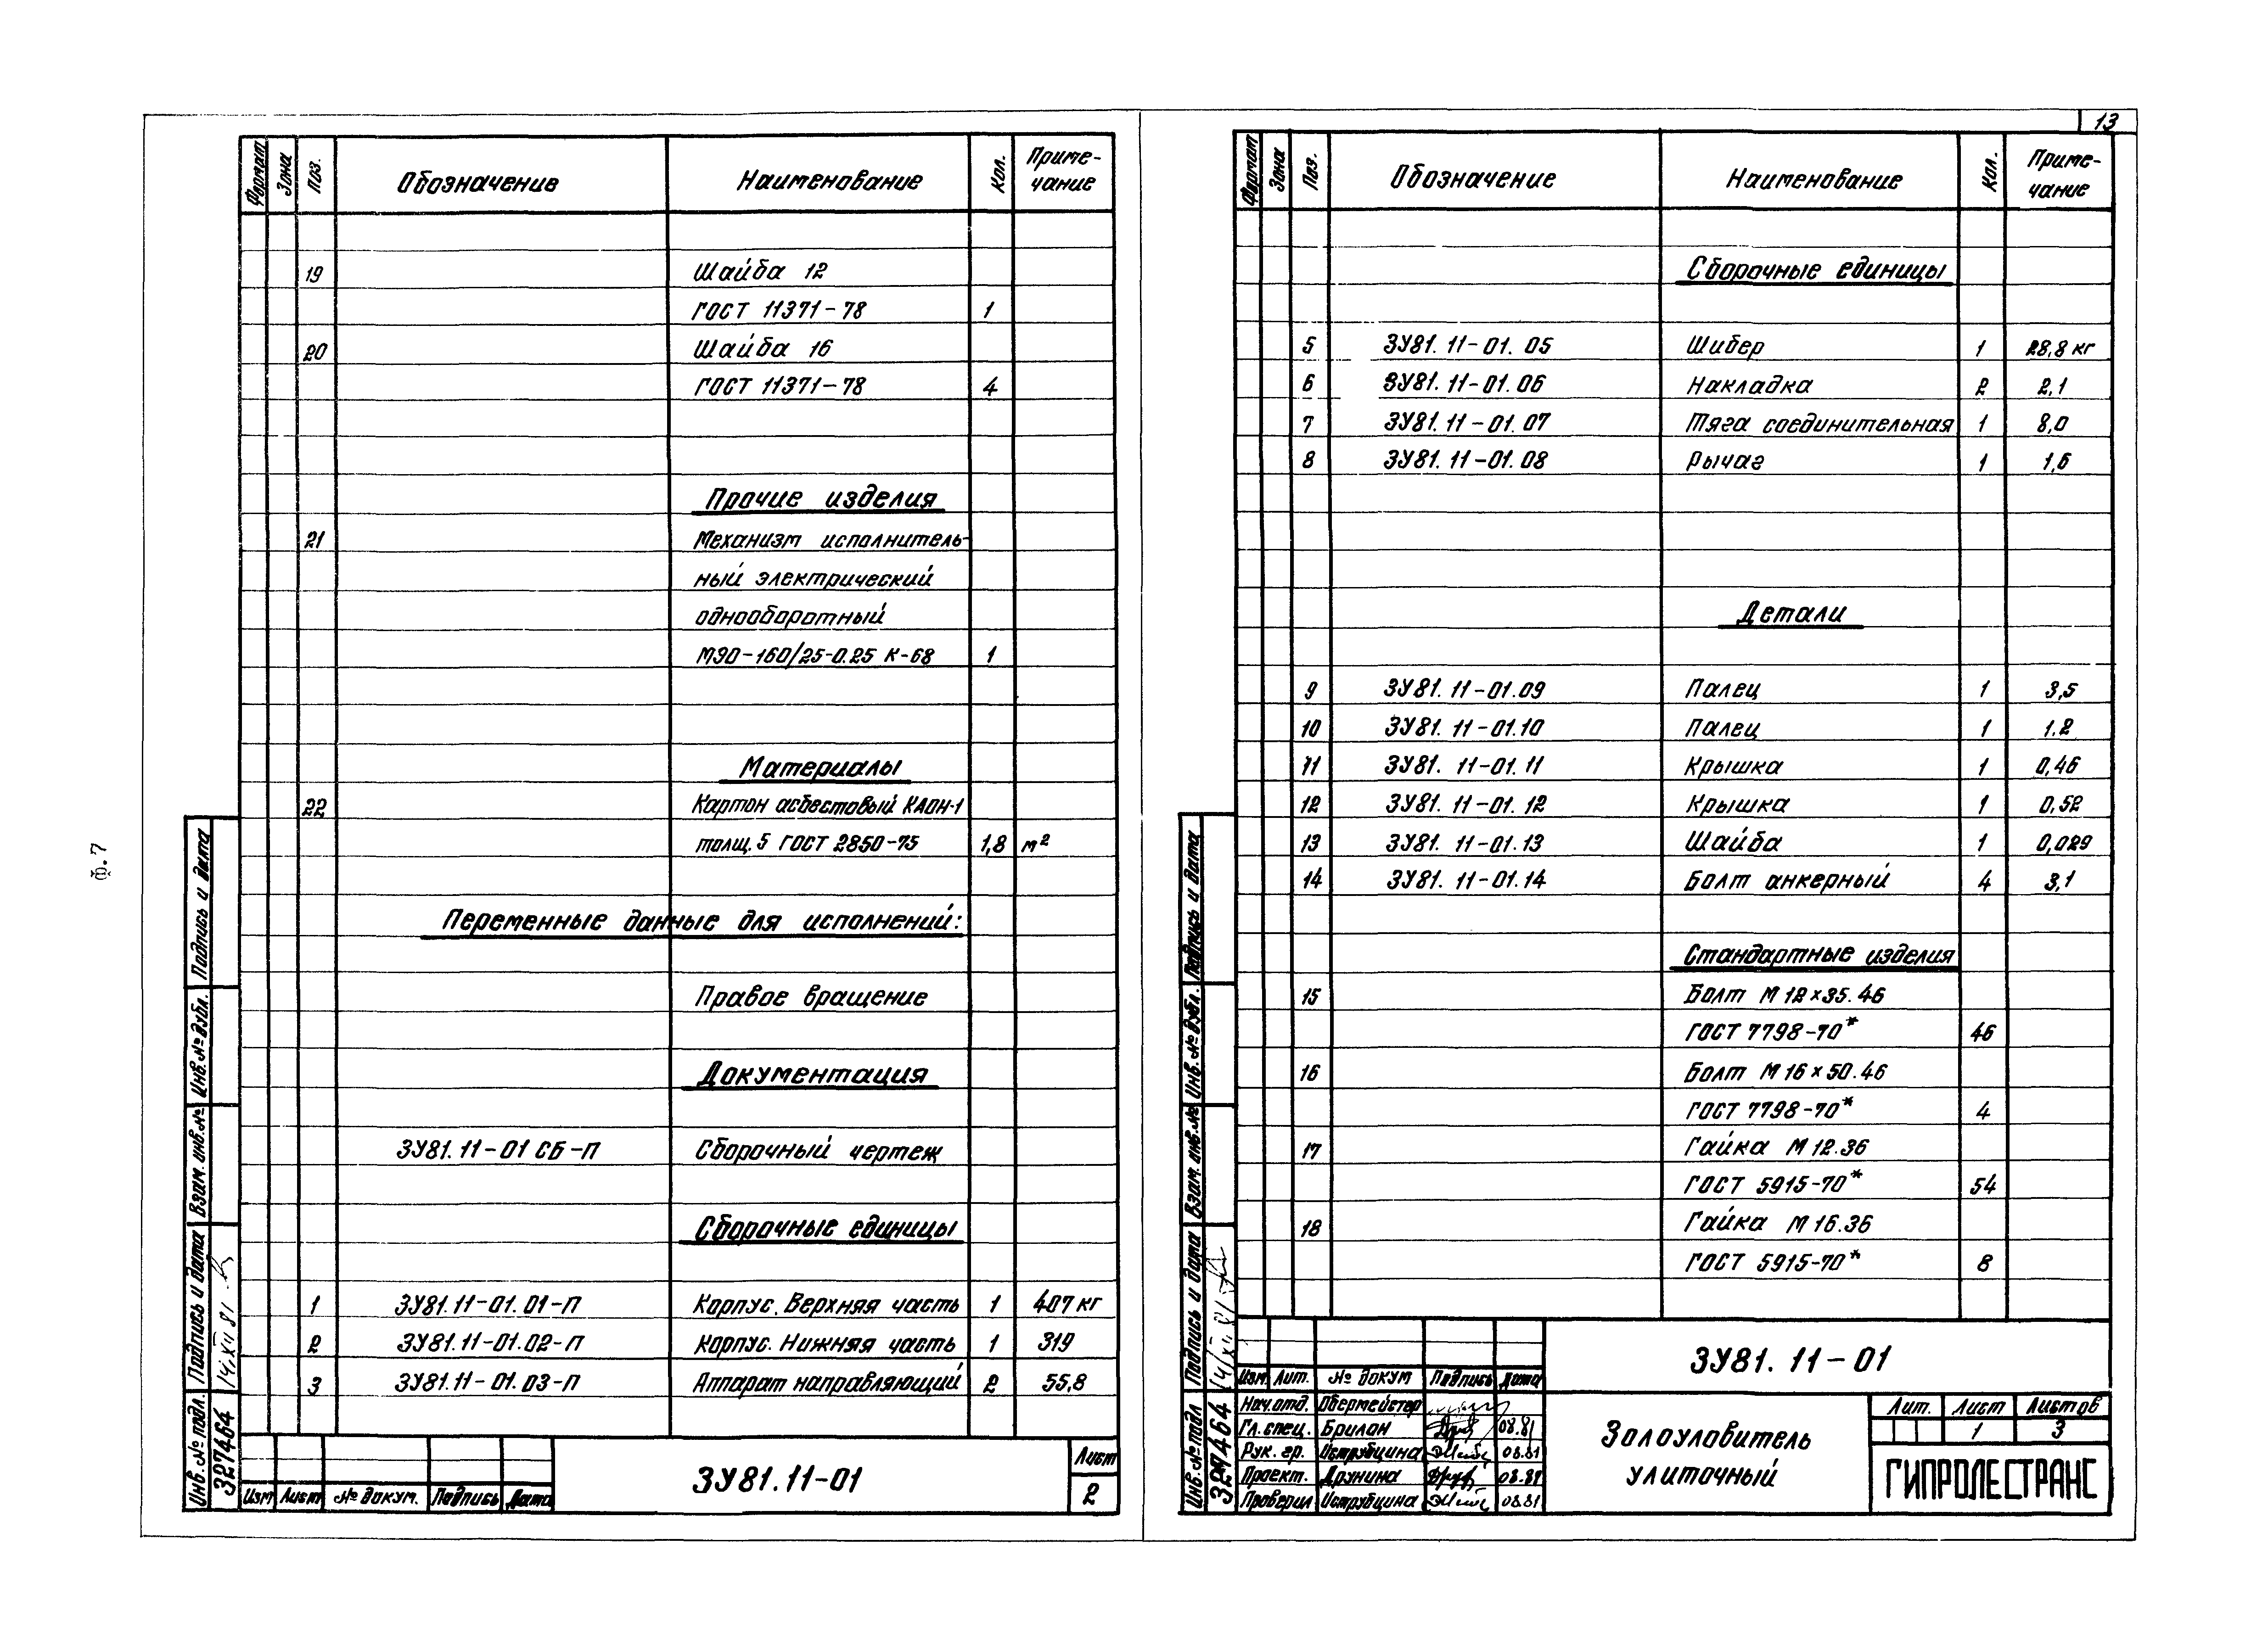 13
Формат Зона Поз. Обозначение Наименование Кол. Приме-
чание
19 Шайба 12
ГОСТ 11371-78 1
20 Шайба 16
ГОСТ 11371-78 4
Прочие изделия
21 Механизм исполнитель-
ный электрический
однооборотный
МЭО-160/25-0.25 К-68 1
Материалы
22 Картон асбестовый КАОН-1
толщ. 5 ГОСТ 2850-75 1,8 м²
Переменные данные для исполнений:
Правое вращение
Документация
ЗУ81.11-01 СБ-П Сборочный чертеж
Сборочные единицы
1 ЗУ81.11-01.01-П Корпус. Верхняя часть 1 407 кг
2 ЗУ81.11-01.02-П Корпус. Нижняя часть 1 319
3 ЗУ81.11-01.03-П Аппарат направляющий 2 55,8
Изм Лист № докум. Подпись Дата
ЗУ81.11-01
Лист
2
Инв. № подл. Подпись и дата Взам. инв. № Инв. № дубл. Подпись и дата
327464 14/XII 81
ф. 7
Формат Зона Поз. Обозначение Наименование Кол. Приме-
чание
Сборочные единицы
5 ЗУ81.11-01.05 Шибер 1 28,8 кг
6 ЗУ81.11-01.06 Накладка 2 2,1
7 ЗУ81.11-01.07 Тяга соединительная 1 8,0
8 ЗУ81.11-01.08 Рычаг 1 1,6
Детали
9 ЗУ81.11-01.09 Палец 1 3,5
10 ЗУ81.11-01.10 Палец 1 1.2
11 ЗУ81.11-01.11 Крышка 1 0,46
12 ЗУ81.11-01.12 Крышка 1 0,52
13 ЗУ81.11-01.13 Шайба 1 0,029
14 ЗУ81.11-01.14 Болт анкерный 4 3,1
Стандартные изделия
15 Болт М12×35.46
ГОСТ 7798-70* 46
16 Болт М16×50.46
ГОСТ 7798-70* 4
17 Гайка М12.36
ГОСТ 5915-70* 54
18 Гайка М16.36
ГОСТ 5915-70* 8
Изм Лит. № докум Подпись Дата
Нач.отд. Обермейстер
Гл.спец. Брилон 08.81
Рук. гр. Иструбцина 08.81
Проект. Друнина 08.81
Проверил Иструбцина 08.81
ЗУ81.11-01
Золоуловитель
улиточный
Лит. Лист Листов
1 3
ГИПРОЛЕСТРАНС
Инв. № подл Подпись и дата Взам. инв. № Инв. № дубл. Подпись и дата
327464 14/XII 81